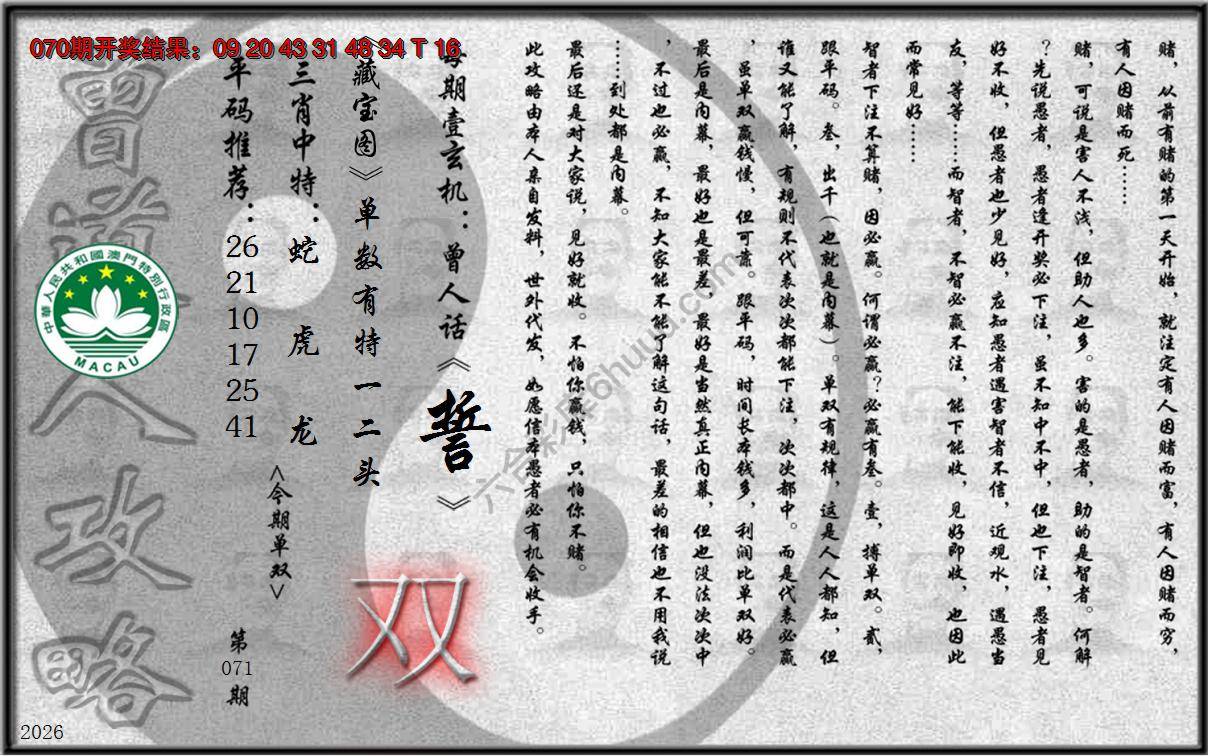 070期开奖结果：09 20 43 31 48 34 T 16
赌，从前有赌的第一天开始，就注定有人因赌而富，有人因赌而穷，
有人因赌而死……
赌，可说是害人不浅，但助人也多。害的是愚者，助的是智者。何解
？先说愚者，愚者逢开奖必下注，虽不知中不中，但也下注，愚者见
好不收，但愚者也少见好，应知愚者遇害智者不信，近观水，遇愚当
友，等等……而智者，不智必赢不注，能下能收，见好即收，也因此
而常见好……
智者下注不算赌，因必赢。何谓必赢？必赢有叁。壹，搏单双。贰，
跟平码。叁，出千（也就是内幕）。单双有规律，这是人人都知，但
谁又能了解，有规则不代表次次都能下注，次次都中。而是代表必赢
，虽单双赢钱慢，但可靠。跟平码，时间长本钱多，利润比单双好。
最后是内幕，最好也是最差，最好是当然真正内幕，但也没法次次中
，不过也必赢，不知大家能不能了解这句话，最差的相信也不用我说
……到处都是内幕。
最后还是对大家说，见好就收。不怕你赢钱，只怕你不赌。
此攻略由本人亲自发料，世外代发，如愿信本愚者必有机会收手。
每期壹玄机：曾人话《誓》
《藏宝图》单数有特一二头
双
三肖中特：蛇 虎 龙
<今期单双>
平码推荐：26 21 10 17 25 41
第071期
曾道人攻略
中華人民共和國澳門特別行政區
MACAU
六合彩库6huuu.com
2026